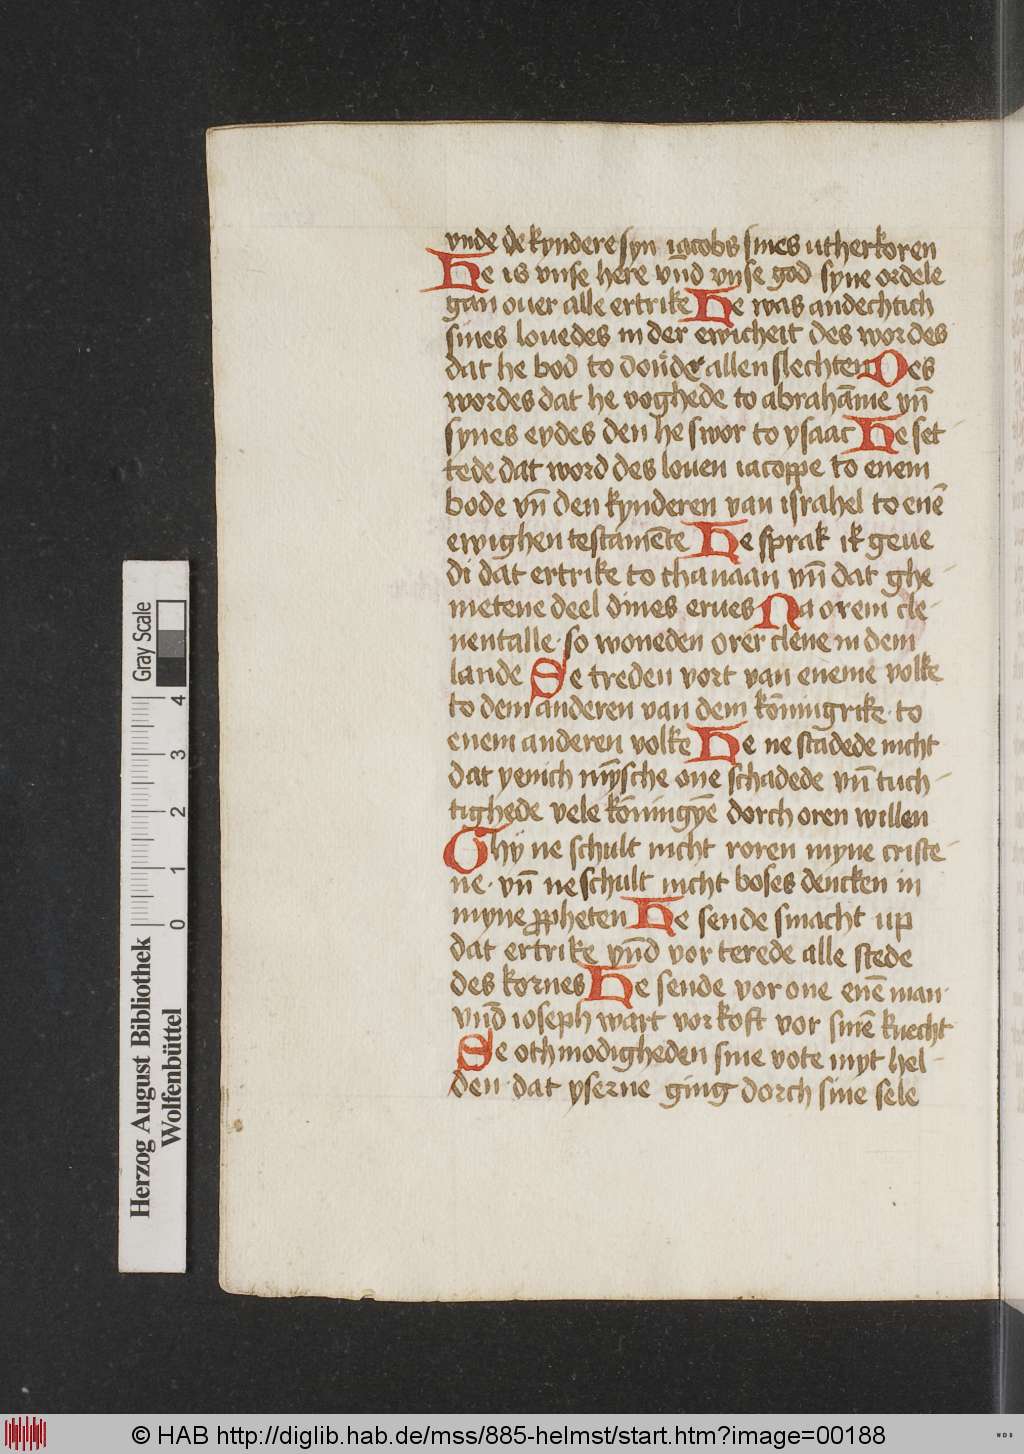 vnde de kyndere syn iacobs sines utherkoren
He is vnse here vnd vnse god syne ordele
gan ouer alle ertrike He was andechtich
sines louedes in der ewicheit des wordes
dat he bod to allen slechten Des
wordes dat he voghede to abrahāme vn̄
synes eydes den he swor to ysaac He set-
tede dat word des louen iacoppe to enem
bode vn̄ den kynderen van israhel to enē
ewighen testamēte He sprak ik geue
di dat ertrike to chanaan vn̄ dat ghe-
metene deel dines erues Na orem cle-
nentalle· so woneden orer clene in dem
lande Se treden vort van eneme volke
to dem anderen van dem kōningrike· to
enem anderen volke He ne stadede nicht
dat yenich mȳsche one schadede vn̄ tuch-
tighede vele kōningȳe dorch oren willen
Ghy ne schult nicht roren myne criste-
ne· vn̄ ne schult nicht boses dencken in
myne ꝓpheten He sende smacht up
dat ertrike vnd̄ vor terede alle stede
des kornes He sende vor one enē man·
vnd̄ ioseph wart vorkoft vor sinē knecht
Se othmodigheden sine vote myt hel-
den· dat yserne ging dorch sine sele
Gray Scale
0 1 2 3 4
Herzog August Bibliothek
Wolfenbüttel
© HAB http://diglib.hab.de/mss/885-helmst/start.htm?image=00188